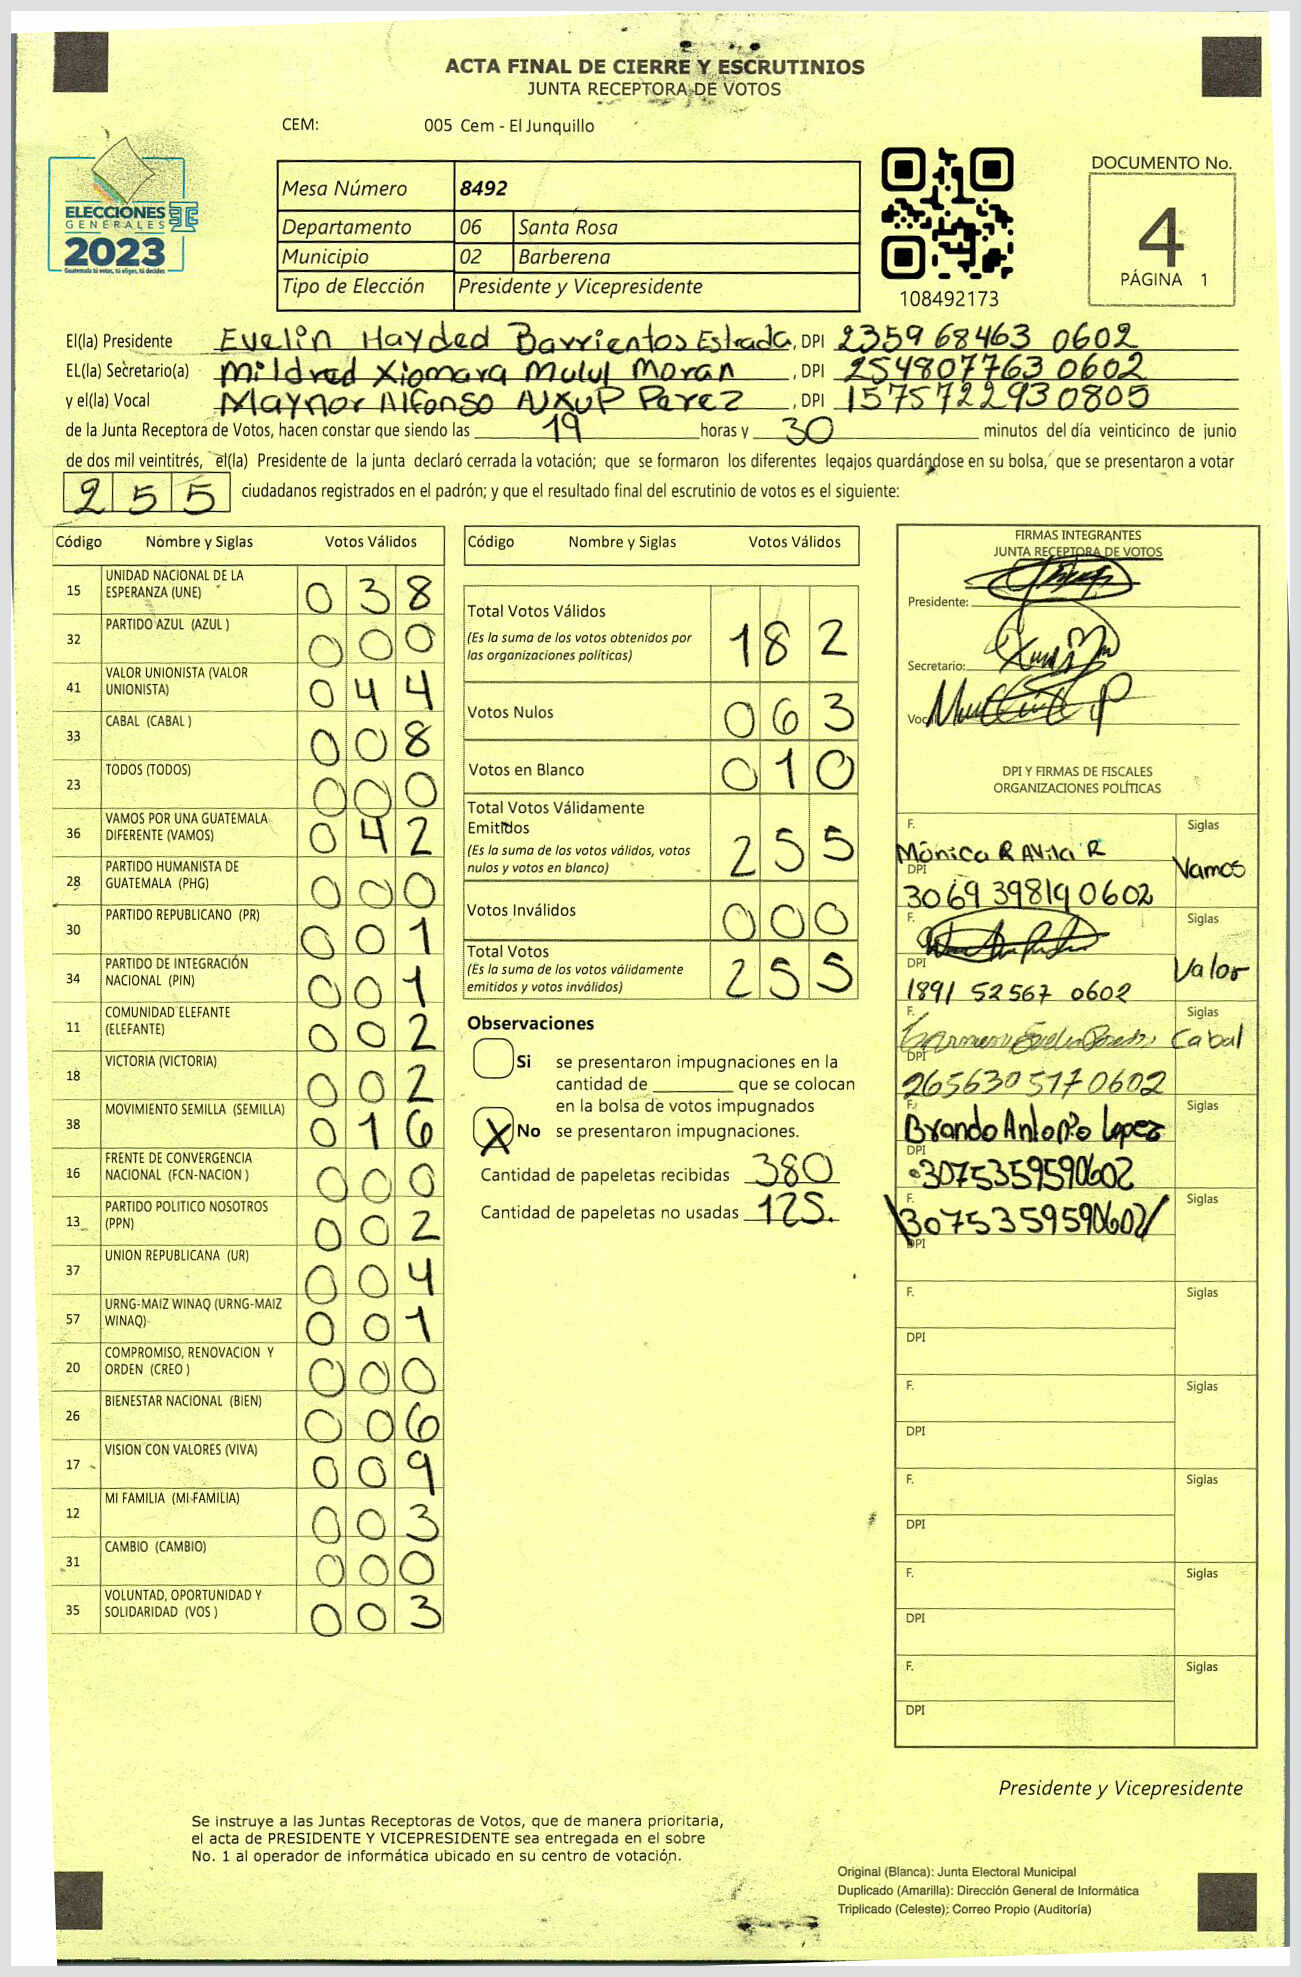 ACTA FINAL DE CIERRE Y ESCRUTINIOS
JUNTA RECEPTORA DE VOTOS
CEM: 005 Cem - El Junquillo
ELECCIONES
GENERALES
2023
Guatemala tú votas, tú eliges, tú decides
Mesa Número 8492
Departamento 06 Santa Rosa
Municipio 02 Barberena
Tipo de Elección Presidente y Vicepresidente
108492173
DOCUMENTO No.
4
PÁGINA 1
El(la) Presidente Evelin Hayded Barrientos Estrada, DPI 2359 68463 0602
EL(la) Secretario(a) Mildred Xiomara Mulul Moran, DPI 254807763 0602
y el(la) Vocal Maynor Alfonso AJXUP Perez, DPI 1575722930805
de la Junta Receptora de Votos, hacen constar que siendo las 19 horas y 30 minutos del día veinticinco de junio
de dos mil veintitrés, el(la) Presidente de la junta declaró cerrada la votación; que se formaron los diferentes legajos guardándose en su bolsa, que se presentaron a votar
255 ciudadanos registrados en el padrón; y que el resultado final del escrutinio de votos es el siguiente:
Código Nombre y Siglas Votos Válidos
15 UNIDAD NACIONAL DE LA ESPERANZA (UNE) 038
32 PARTIDO AZUL (AZUL ) 000
41 VALOR UNIONISTA (VALOR UNIONISTA) 044
33 CABAL (CABAL ) 008
23 TODOS (TODOS) 000
36 VAMOS POR UNA GUATEMALA DIFERENTE (VAMOS) 042
28 PARTIDO HUMANISTA DE GUATEMALA (PHG) 000
30 PARTIDO REPUBLICANO (PR) 001
34 PARTIDO DE INTEGRACIÓN NACIONAL (PIN) 001
11 COMUNIDAD ELEFANTE (ELEFANTE) 002
18 VICTORIA (VICTORIA) 002
38 MOVIMIENTO SEMILLA (SEMILLA) 016
16 FRENTE DE CONVERGENCIA NACIONAL (FCN-NACION ) 000
13 PARTIDO POLITICO NOSOTROS (PPN) 002
37 UNION REPUBLICANA (UR) 004
57 URNG-MAIZ WINAQ (URNG-MAIZ WINAQ) 001
20 COMPROMISO, RENOVACION Y ORDEN (CREO ) 000
26 BIENESTAR NACIONAL (BIEN) 006
17 VISION CON VALORES (VIVA) 009
12 MI FAMILIA (MI FAMILIA) 003
31 CAMBIO (CAMBIO) 000
35 VOLUNTAD, OPORTUNIDAD Y SOLIDARIDAD (VOS ) 003
Código Nombre y Siglas Votos Válidos
Total Votos Válidos 182
(Es la suma de los votos obtenidos por
las organizaciones políticas)
Votos Nulos 063
Votos en Blanco 010
Total Votos Válidamente
Emitidos 255
(Es la suma de los votos válidos, votos
nulos y votos en blanco)
Votos Inválidos 000
Total Votos 255
(Es la suma de los votos válidamente
emitidos y votos inválidos)
Observaciones
Si se presentaron impugnaciones en la
cantidad de ________ que se colocan
en la bolsa de votos impugnados
X No se presentaron impugnaciones.
Cantidad de papeletas recibidas 380
Cantidad de papeletas no usadas 125.
FIRMAS INTEGRANTES
JUNTA RECEPTORA DE VOTOS
Presidente:
Secretario:
Vocal
DPI Y FIRMAS DE FISCALES
ORGANIZACIONES POLÍTICAS
F. Siglas
Mónica R Avila R Vamos
DPI
3069 398190602
F. Siglas
DPI Valor
1891 52567 0602
F. Siglas
Cabal
DPI
2656305170602
F. Siglas
Brando Antonio Lopez
DPI
3075359590602
F. Siglas
3075359590602
DPI
F. Siglas
DPI
F. Siglas
DPI
F. Siglas
DPI
F. Siglas
DPI
F. Siglas
DPI
Presidente y Vicepresidente
Se instruye a las Juntas Receptoras de Votos, que de manera prioritaria,
el acta de PRESIDENTE Y VICEPRESIDENTE sea entregada en el sobre
No. 1 al operador de informática ubicado en su centro de votación.
Original (Blanca): Junta Electoral Municipal
Duplicado (Amarilla): Dirección General de Informática
Triplicado (Celeste): Correo Propio (Auditoría)